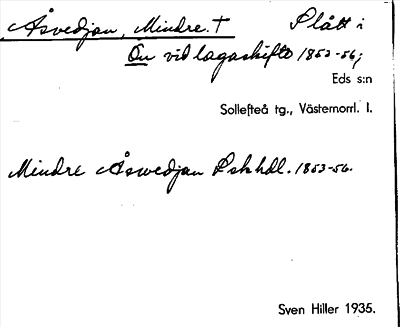 Åsvedjan, Mindre. † Slått i
Ön vid lagaskifte 1853-56;
Eds s:n
Sollefteå tg., Västernorrl. l.
Mindre Åswedjan Lskhdl. 1853-56.
Sven Hiller 1935.